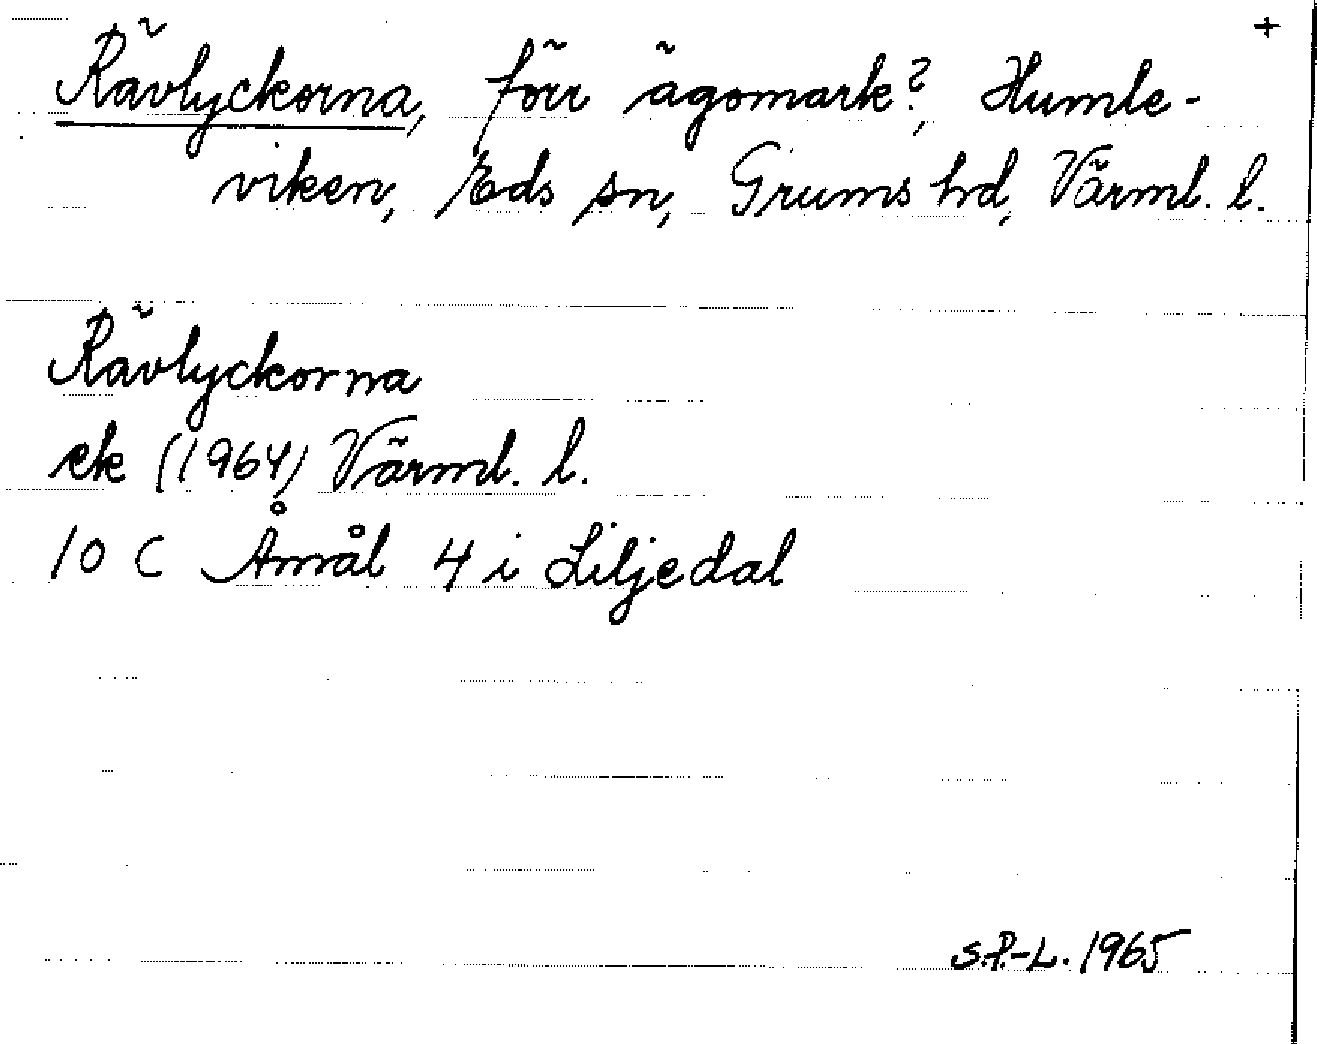 +
Rävlyckorna, förr ägomark?, Humle-
viken, Eds sn, Grums hd, Värml. l.
Rävlyckorna
ek (1964) Värml. l.
10 C Åmål 4 i Liljedal
S.P.-L. 1965